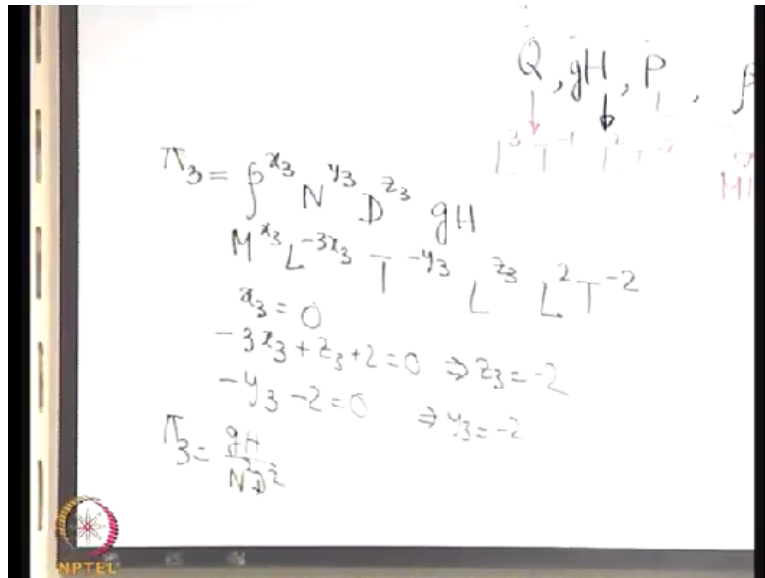 Q, gH, P, ρ
L³ T⁻¹ L² T⁻²
π₃ = ρ^x₃ N^y₃ D^z₃ gH
M^x₃ L^-3x₃ T^-y₃ L^z₃ L² T⁻²
x₃ = 0
-3x₃ + z₃ + 2 = 0 ⇒ z₃ = -2
-y₃ - 2 = 0 ⇒ y₃ = -2
π₃ = gH / N²D²
NPTEL